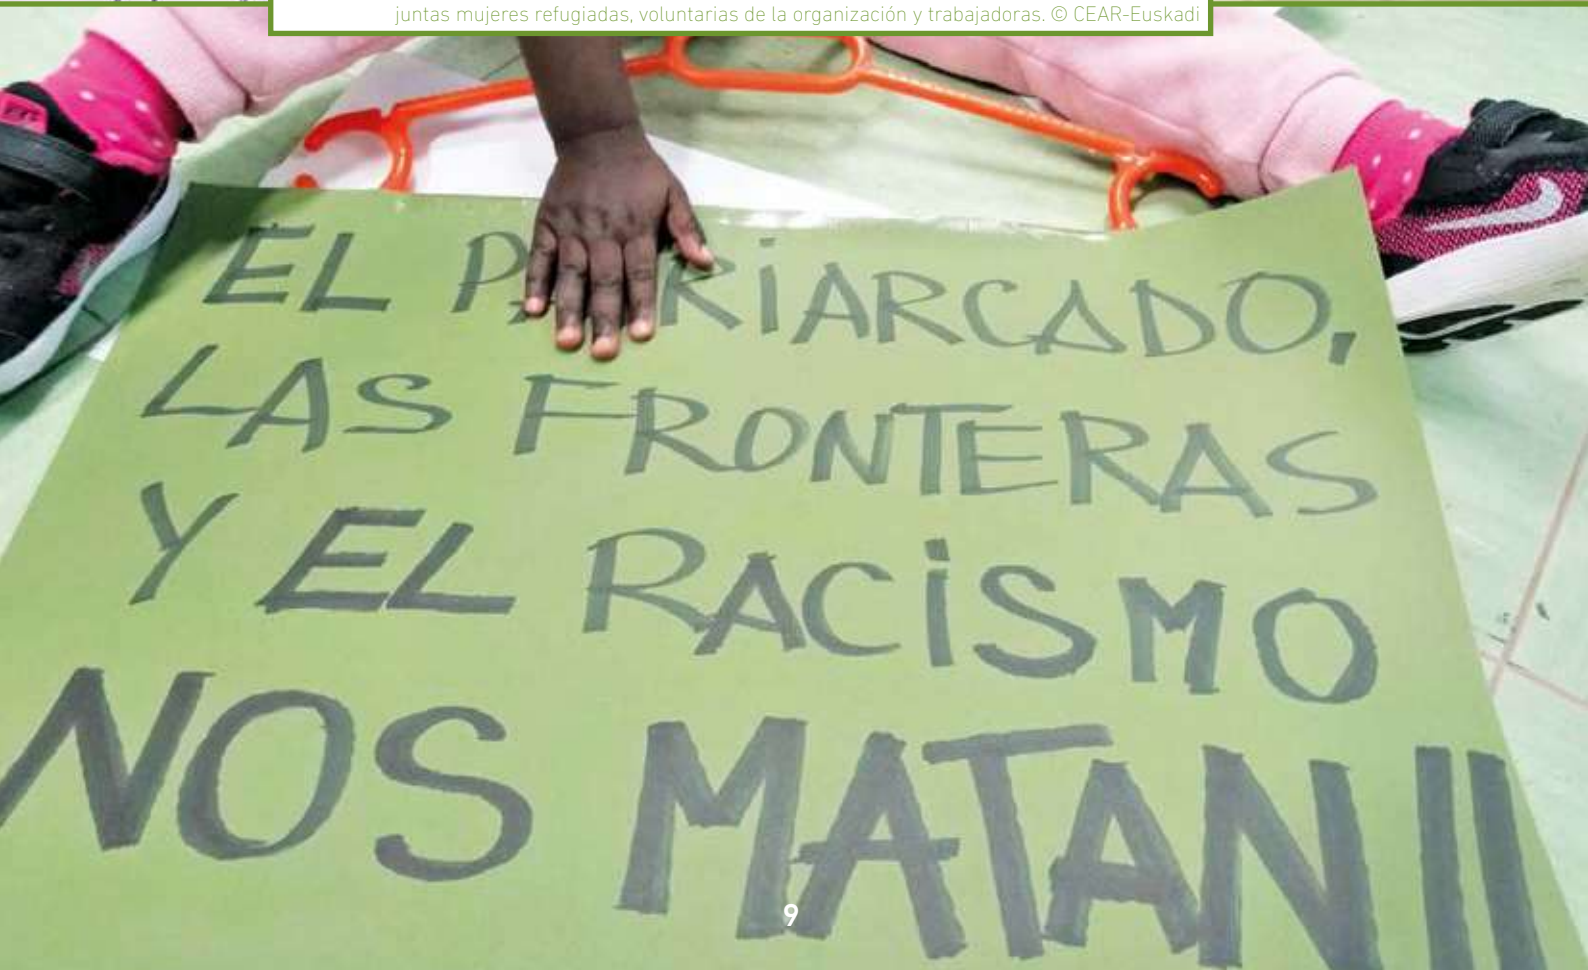 juntas mujeres refugiadas, voluntarias de la organización y trabajadoras. © CEAR-Euskadi
EL PATRIARCADO,
LAS FRONTERAS
Y EL RACISMO
NOS MATAN!!
9